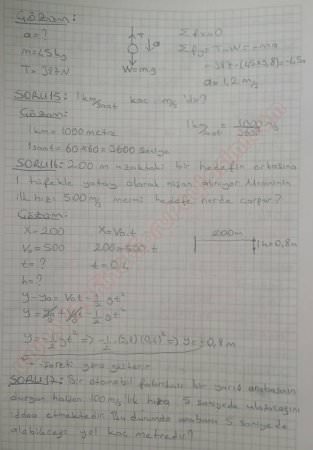 Çözüm:
a=? Σfx=0
m=45kg T a Σfy=T-W=-ma
T=387N W=m.g =387-(45×9,8)=-45a
a=1,2 m/s
SORU15: 1 km/saat kaç m/s 'dir?
Çözüm: 1 km/saat = 1000m/3600s
1km=1000 metre
1saat=60×60=3600 saniye
SORU16: 200 m uzaktaki bir hedefin ortasına
1 tüfekle yatay olarak nişan alınıyor. Merminin
ilk hızı 500 m/s mermi hedefe nerde çarpar?
Çözüm:
X=200 X=Vo.t 200m
Vo=500 200=500.t h=0,8m
t=? t=0,4
h=?
y-yo=Vot-1/2gt²
y=-1/2gt²
y=-1/2gt² => => y=-0,8m
işareti yönü gösterir
SORU17: Bir otomobil fabrikası bir yarış arabasının
durgun halden 100 m/s lik hıza 5 saniyede ulaşacağını
iddia etmektedir. Bu durumda arabanın 5 saniyede
alabileceği yol kaç metredir?